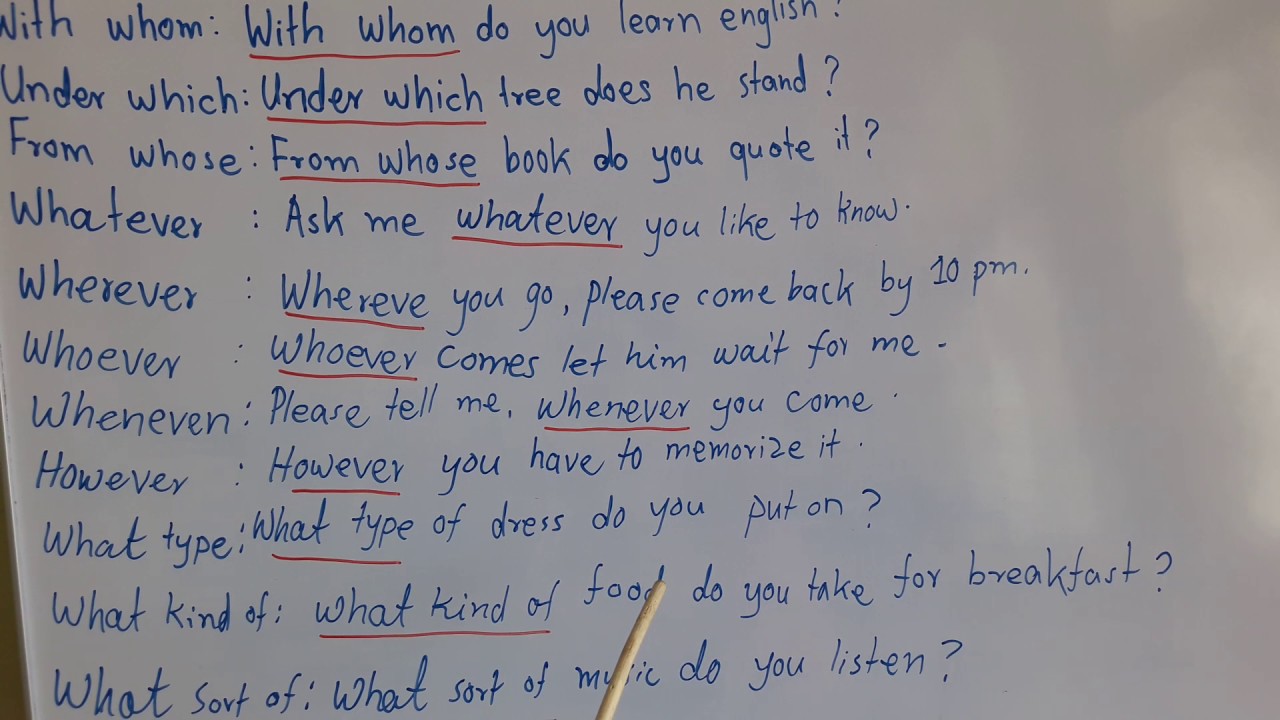 With whom: With whom do you learn english?
Under which: Under which tree does he stand?
From whose: From whose book do you quote it?
Whatever : Ask me whatever you like to know.
Wherever : Whereve you go, please come back by 10 pm.
Whoever : Whoever comes let him wait for me -
Wheneven: Please tell me, whenever you come.
However : However you have to memorize it.
What type: What type of dress do you put on?
What kind of: what kind of food do you take for breakfast?
What sort of: What sort of music do you listen?